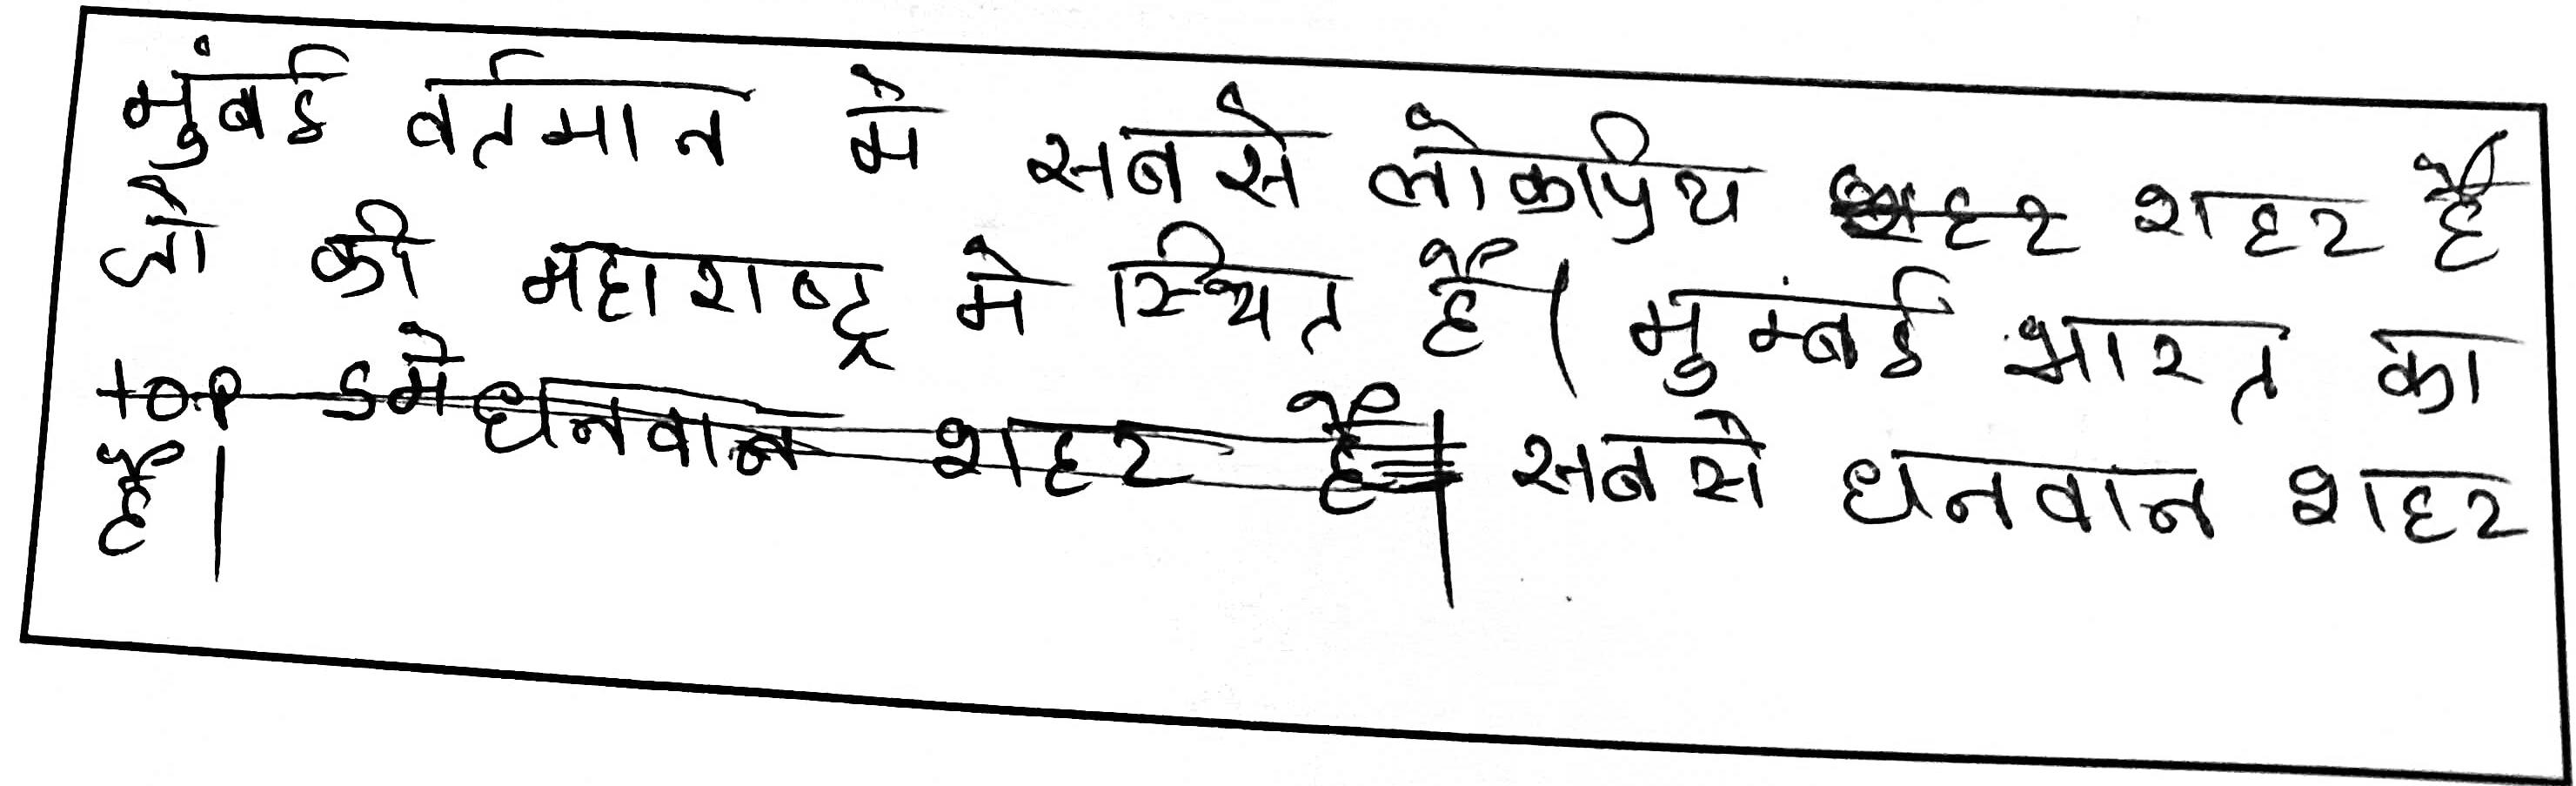 मुंबई वर्तमान मे सबसे लोकप्रिय शहर शहर है
जो की महाराष्ट्र मे स्थित है। मुम्बई भारत का
top 5 मे धनवान शहर है। सबसे धनवान शहर
है।